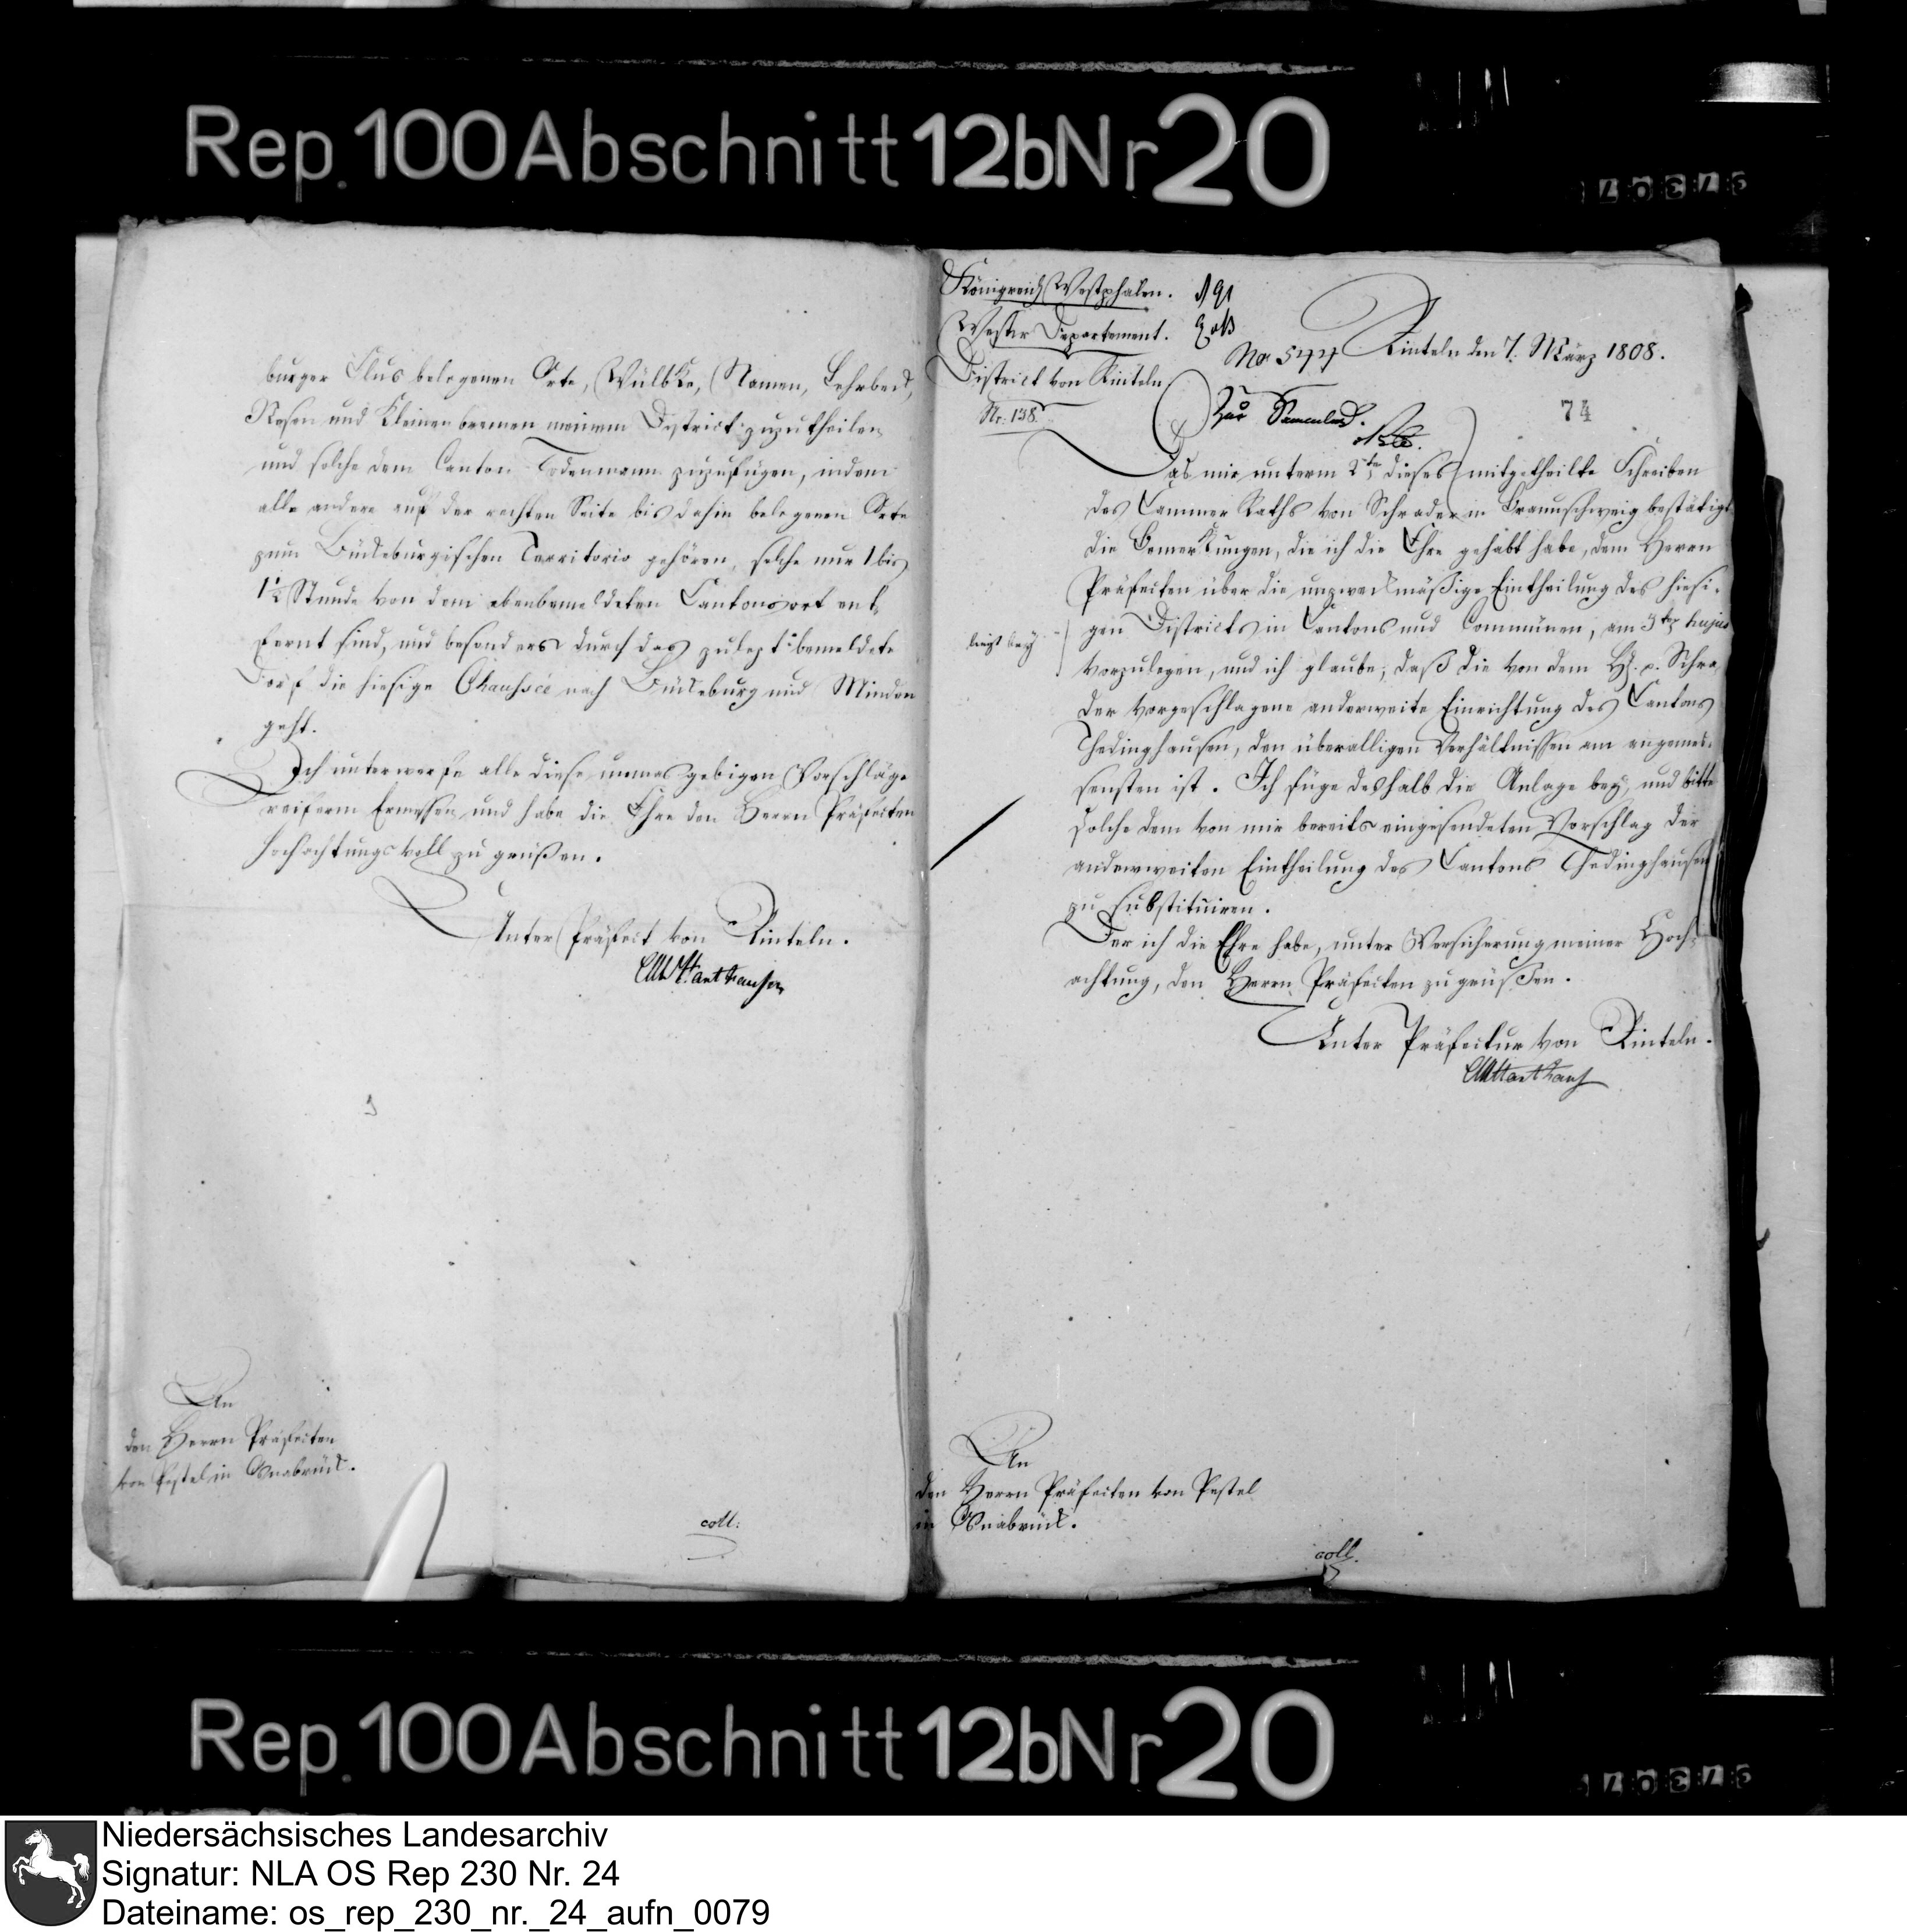 Rep. 100 Abschnitt 12b Nr 20
burger Clus belegenen Orte, Wülbke, Namen, Lehrbeck,
Rösen und Kleinenbremen meinem District zuzutheilen
und solche dem Canton Todenmann zuzufügen, indem
alle andere auf der rechten Seite bis dahin belegenen Orte
zum Bückeburgischen Territorio gehören, solche nur 1 bis
1½ Stunde von dem ebenbemeldeten Cantonsort ent,
fernt sind, und besonders durch das zuletzt bemeldete
Dorf die hiesige Chaussée nach Bückeburg und Minden
geht.
Ich unterwerfe alle diese unmasgebigen Vorschläge
reiferm Ermessen und habe die Ehre den Herrn Präfecten
hochachtungsvoll zu grüßen.
Unter Präfect von Rinteln.
An
den Herrn Präfecten
von Pestel in Osnabrück.
coll:
Königreich Westphalen.
Weser Departement.
District von Rinteln
Nr. 138.
No 544
Rinteln den 7. März 1808.
74
Zur Sammlung.
Das mir unterm 2ten dieses mitgetheilte Schreiben
des Cammer Raths von Schrader in Braunschweig bestätigt
die Bemerkungen, die ich die Ehre gehabt habe, dem Herrn
Präfecten über die unzweckmäßige Eintheilung des hiesi,
gen Districts in Cantons und Communen, am 5ten hujus
liegt bey
vorzulegen, und ich glaube, daß die von dem H. v. Schra,
der vorgeschlagene anderweite Einrichtung des Cantons
Thedinghausen, den überalligen Verhältnissen am angemes,
sensten ist. Ich füge deshalb die Anlage bey, und bitte
solche dem von mir bereits eingesendeten Vorschlag der
anderweiten Eintheilung des Cantons Thedinghausen
zu substituiren.
Der ich die Ehre habe, unter Versicherung meiner Hoch,
achtung, den Herrn Präfecten zu grüßen.
Unter Präfectur von Rinteln.
An
den Herrn Präfecten von Pestel
in Osnabrück.
coll.
Rep. 100 Abschnitt 12b Nr 20
Niedersächsisches Landesarchiv
Signatur: NLA OS Rep 230 Nr. 24
Dateiname: os_rep_230_nr._24_aufn_0079